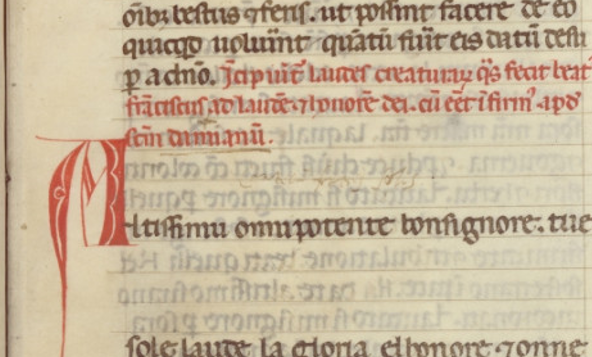 õibȝ bestiis ⁊ feris. ut possint facere de eo
quicqd uoluĩnt quãtũ fũit eis datũ desu
p a dñõ. Jcipiũt laudes creaturaꝝ qs̃ fecit beat
frãciscus ad laudẽ ⁊ honorẽ dei. cũ eẽt ĩfirm apd
scm̃ damianũ.
Altissimu omnipotente bonsignore. tue
sole laude la gloria elhonore ⁊ onne